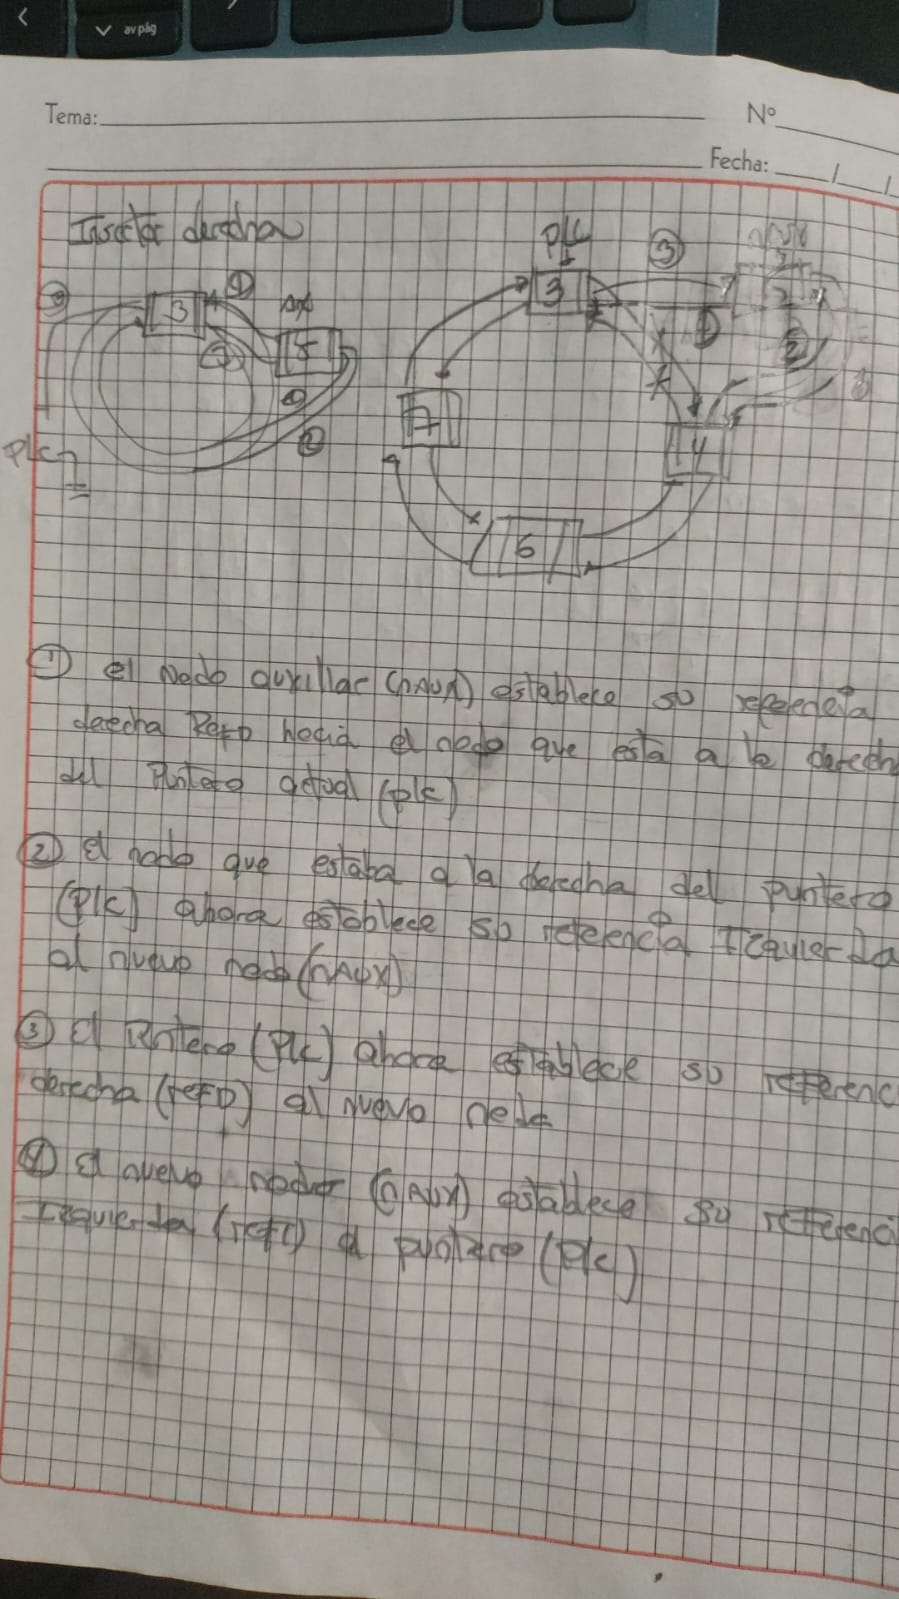 av pág
Tema:
Nº
Fecha: / /
Insertar derecha
plc
3
3
1
Aux
3
2
5
3
1
2
4
2
7
4
Plc
6
① el Nodo auxiliar (nAUX) establece su referencia
derecha RefD hacia el nodo que esta a la derech
del Puntero actual (plc)
② el nodo que estaba a la derecha del puntero
(Plc) ahora establece su referencia Izquierda
al nuevo nodo (nAUX)
③ el Puntero (Plc) ahora establece su referenc
derecha (refD) al nuevo nodo
④ el nuevo nodo (nAUX) establece su referenci
Izquierda (refI) al puntero (Plc)